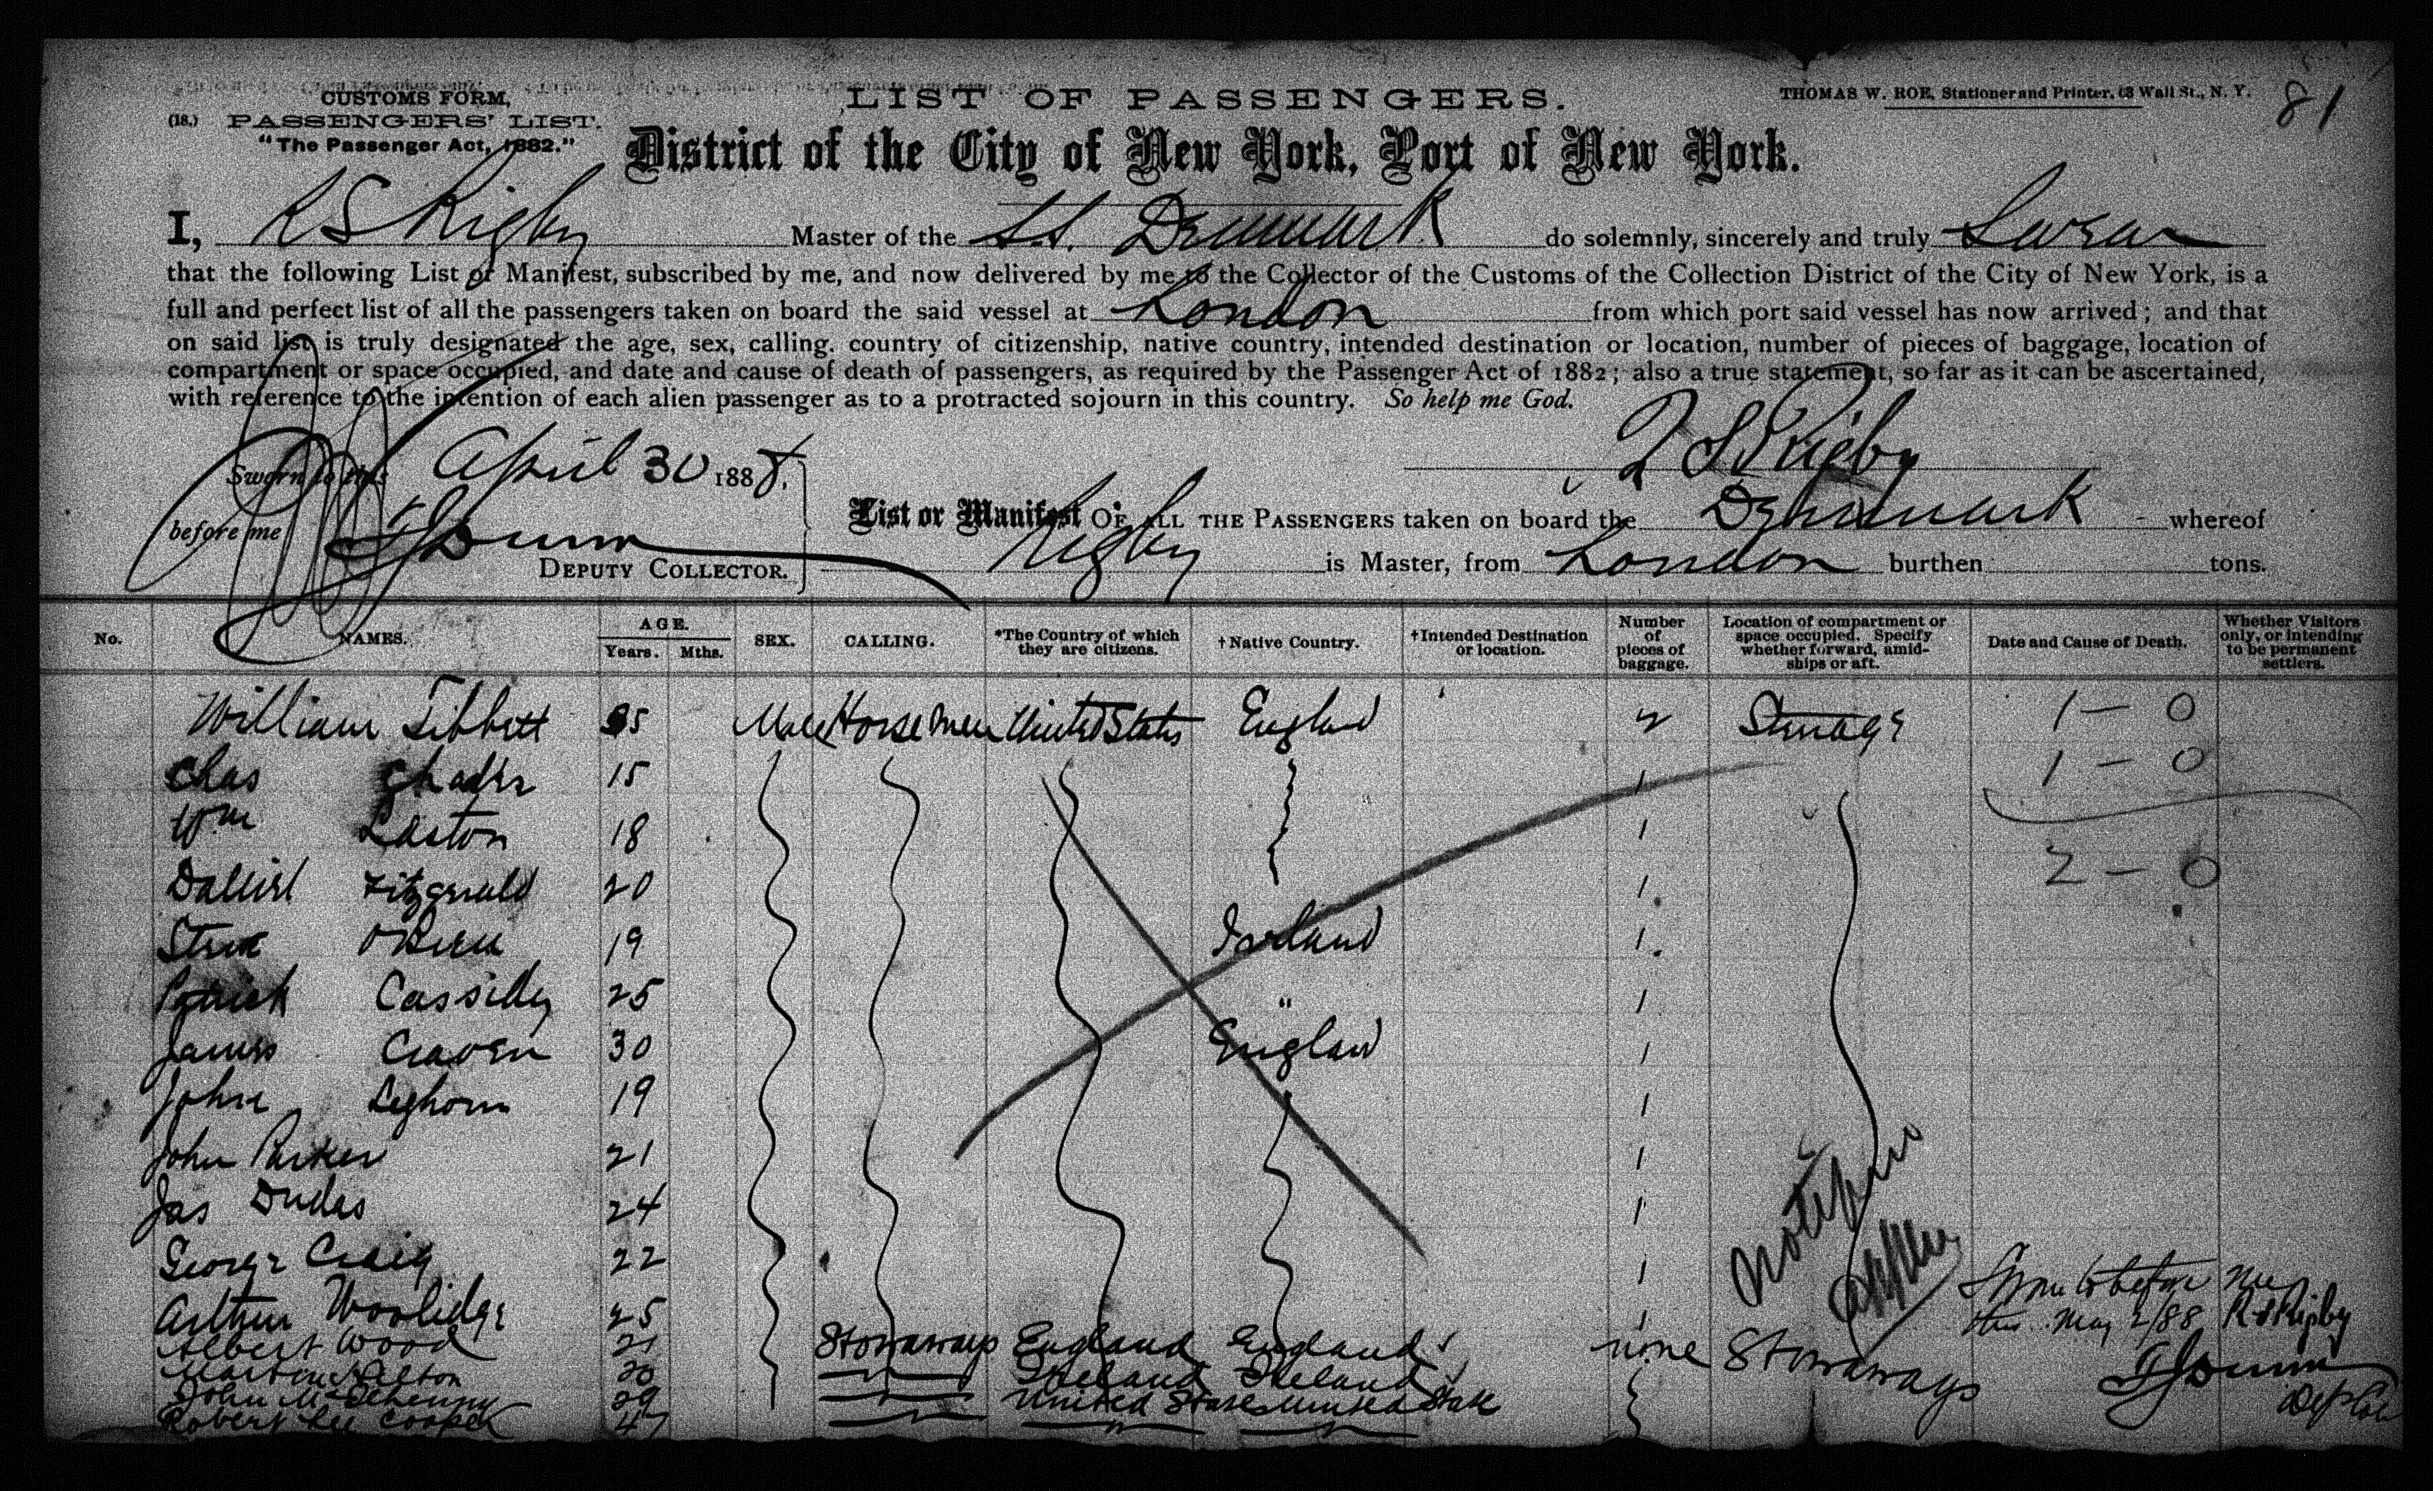 CUSTOMS FORM,
(18.) PASSENGERS' LIST.
"The Passenger Act, 1882."
LIST OF PASSENGERS.
THOMAS W. ROE, Stationer and Printer, 63 Wall St., N. Y.
81
District of the City of New York, Port of New York.
I, R S Rigby Master of the S.S. Denmark do solemnly, sincerely and truly Swear
that the following List or Manifest, subscribed by me, and now delivered by me to the Collector of the Customs of the Collection District of the City of New York, is a
full and perfect list of all the passengers taken on board the said vessel at London from which port said vessel has now arrived; and that
on said list is truly designated the age, sex, calling, country of citizenship, native country, intended destination or location, number of pieces of baggage, location of
compartment or space occupied, and date and cause of death of passengers, as required by the Passenger Act of 1882; also a true statement, so far as it can be ascertained,
with reference to the intention of each alien passenger as to a protracted sojourn in this country. So help me God.
R S Rigby
Sworn to this April 30 1888.
before me Dunn
DEPUTY COLLECTOR.
List or Manifest OF ALL THE PASSENGERS taken on board the Denmark whereof
Rigby is Master, from London burthen tons.
No. NAMES. AGE. Years. Mths. SEX. CALLING. *The Country of which they are citizens. †Native Country. †Intended Destination or location. Number of pieces of baggage. Location of compartment or space occupied. Specify whether forward, amidships or aft. Date and Cause of Death. Whether Visitors only, or intending to be permanent settlers.
William Tibbett 35 Male Horsemen United States England 2 Steerage 1 - 0
Chas 15 1 1 - 0
Wm Easton 18 1
Daniel Fitzgerald 20 1 2 - 0
Steve OBrien 19 Ireland 1
Patrick Cassidy 25 " 1
James Craven 30 England 1
John Leghorn 19 1
John Parker 21 1
Jas Dudas 24 1
George Craig 22 1
Arthur Woolidge 25 1
Albert Wood 21 Stowaways England England none Stowaways
Martin Hilton 20 Ireland Ireland
John McIlhenny 29 United States United States
Robert Lee Cooper 47
Sworn to before me
this May 2/88 R S Rigby
Dunn
Dep Col